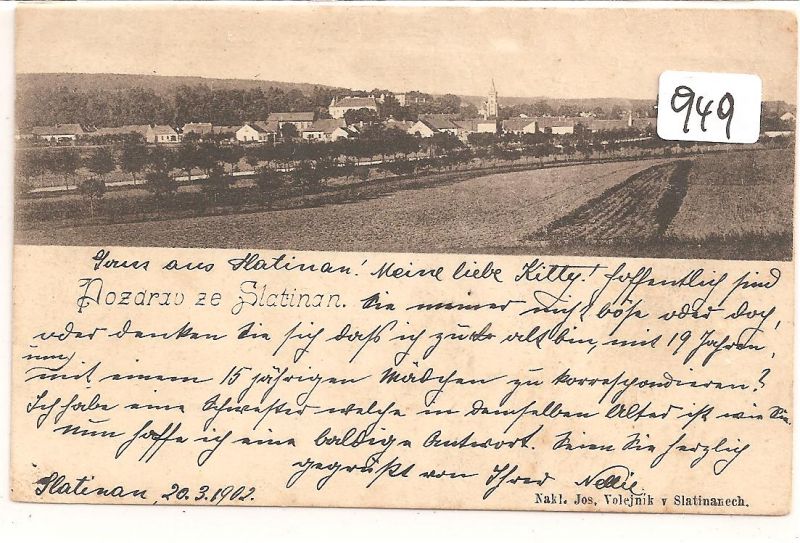 949
Gruss aus Slatinan! Meine liebe Kitty! Hoffentlich sind
Pozdrav ze Slatinan.
Sie meiner nicht böse oder doch,
oder denken Sie sich dass ich zu alt bin, mit 19 Jahren,
um
mit einem 15 jährigen Mädchen zu korrespondieren?
Ich habe eine Schwester welche in demselben Alter ist wie Sie.
Nun hoffe ich eine baldige Antwort. Seien Sie herzlich
gegrüßt von Ihrer Nellie
Slatinan, 20.3.1902.
Nakl. Jos. Volejník v Slatinanech.